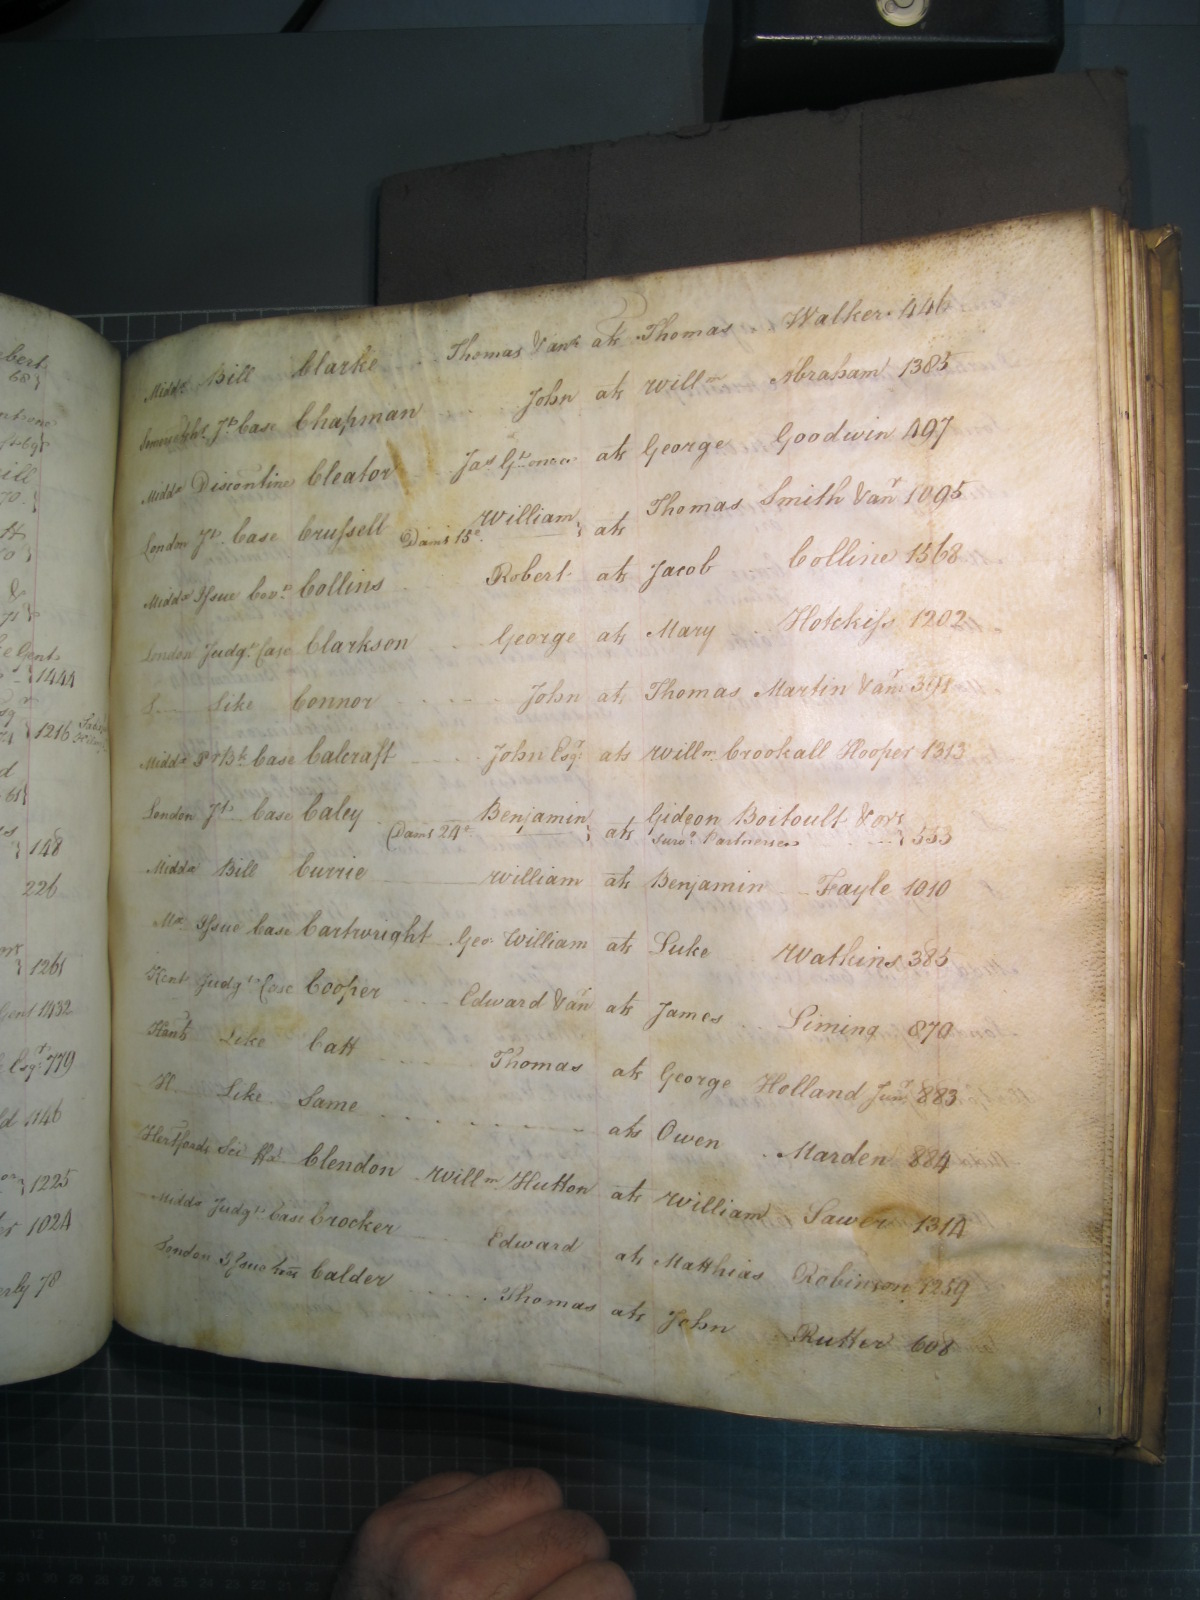 Middx Bill Clarke Thomas & anr. ats Thomas Walker 446
Jt. Case Chapman John ats Willm. Abraham 1385
Middx Discontine Cleator Jas ats George Goodwin 497
London Jt. Case Crussell Dams 15£. William ats Thomas Smith & anr 1095
Middx Issue Covt. Collins Robert ats Jacob Colline 1568
London Judgt. Case Clarkson George ats Mary Hotchkiss 1202
L Like Connor John ats Thomas Martin & anr
Middx Case Calcraft John Esqr. ats Willm. Crookall Hooper 1313
London Jt. Case Caley Dams 24£ Benjamin ats Gideon Boitoult & ors survg. Partners 553
Middx Bill Currie William ats Benjamin Fayle 1010
Mx Issue Case Cartwright Geo. William ats Luke Watkins 385
Kent Judgt. Case Cooper Edward & anr ats James Siming 879
Hants Like Catt Thomas ats George Holland Junr. 883
H Like Same ats Owen Marden 884
Hertfords Sci fa Clendon Willm. Hutton ats William Sawer 1314
Midds Judgt. Case Crocker Edward ats Matthias Robinson 1259
London Issue Calder Thomas ats John Rutter 608
1444
1216
148
226
1261
Gent 1432
Esqr. 779
1146
1225
1024
78